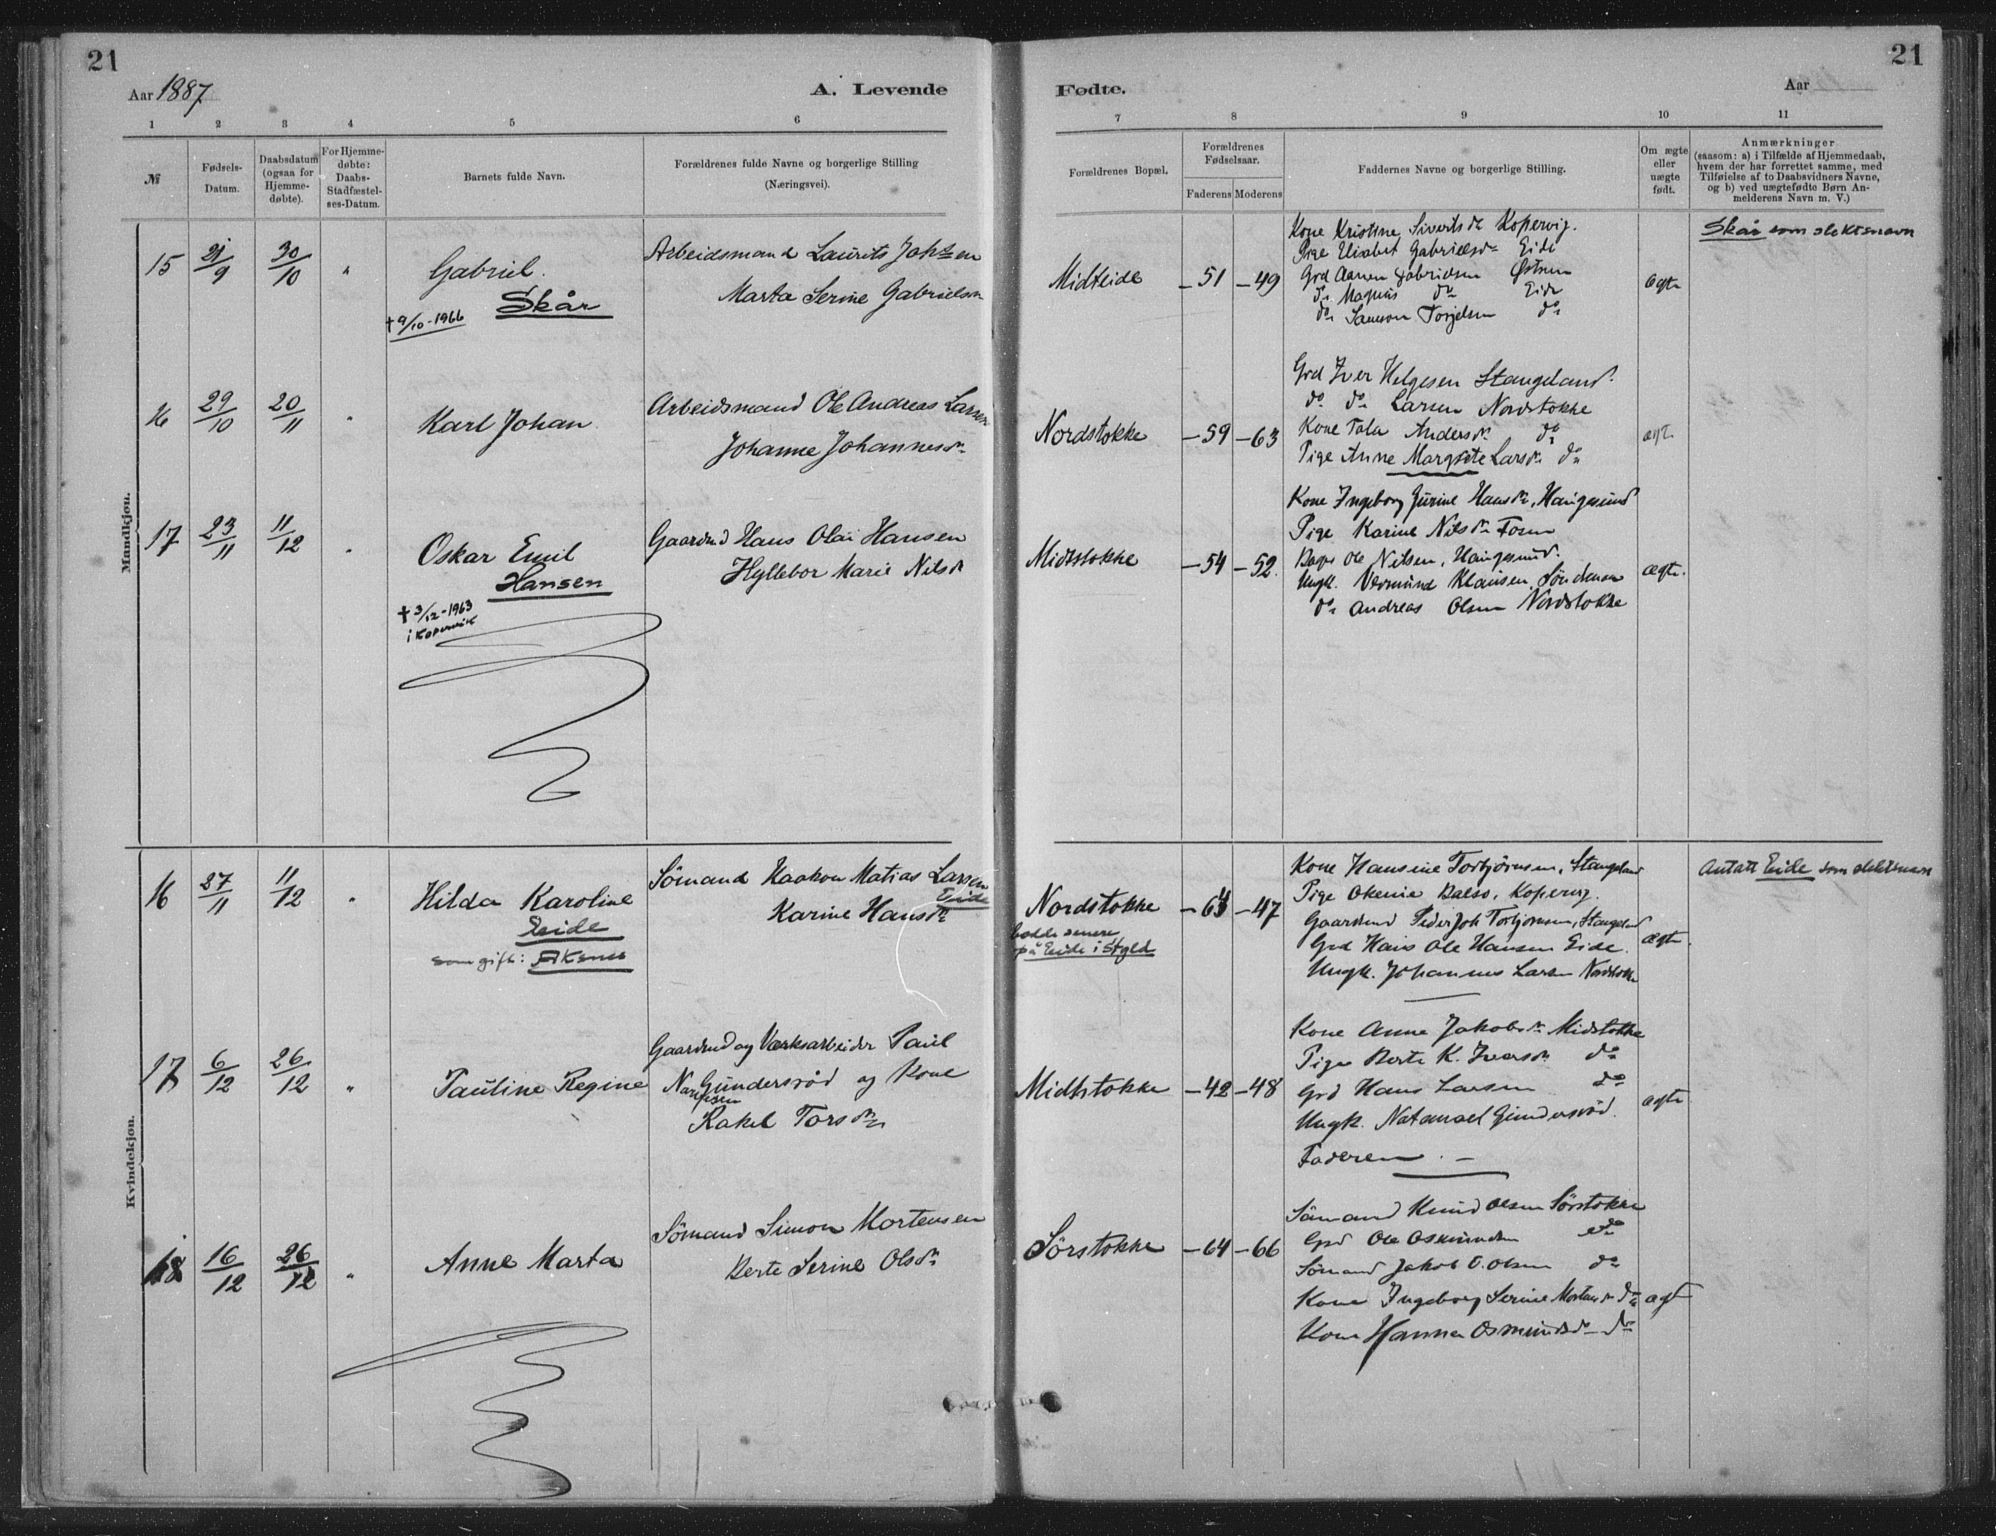 21
Aar 1887
A. Levende
1 2 3 4 5 6
№
Fødsels-
Datum.
Daabsdatum
(ogsaa for
Hjemme-
døbte).
For Hjemme-
døbte:
Daabs-
Stadfæstel-
ses-Datum.
Barnets fulde Navn.
Forældrenes fulde Navne og borgerlige Stilling
(Næringsvei).
Mandkjøn.
15 21/9 30/10 "
Gabriel.
Skår
† 9/10-1966
Arbeidsmand Laurits
Marta Serine Gabrielsd
16 29/10 20/11 "
Karl Johan
Arbeidsmand Ole Andreas Larsen
Johanne Johannesd.
17 23/11 11/12 "
Oskar Emil
Hansen
† 3/12-1963
i Kopervik
Gaardmd Hans Olai Hansen
Hyllebor Marie Nilsdr
Kvindekjøn.
16 27/11 11/12 "
Hilda Karoline
Eide
som gift:
Sømand Haakon Matias Larsen
Eide
Karine Hansdr
17 6/12 26/12 "
Pauline Regine
Gaardmd og Værksarbeider Paul
Gundersrød og Kone
Rakel Torsdr
18 16/12 26/12 "
Anne Marta
Sømand Simon Mortensen
Berte Serine Olsdr
21
Fødte.
Aar
7 8 9 10 11
Forældrenes Bopæl.
Forældrenes
Fødselsaar.
Faderens Moderens
Faddernes Navne og borgerlige Stilling.
Om ægte
eller
uægte
født.
Anmærkninger
(saasom: a) i Tilfælde af Hjemmedaab,
hvem der har forrettet samme, med
Tilføielse af to Daabsvidners Navne,
og b) ved uægtefødte Børn An-
melderens Navn m. V.)
Midteide -51 -49
Kone Kristine Sivertsdr Kopervig.
Pige Elisabet Gabrielsdr Eide
Grd Aanen Gabrielsen
do Magnus do Eide
do Samson Torjelsen do
ægte
Skår som slektsnavn
Nordstokke -59 -63
Grd Iver Helgesen Stangeland.
do do Larsen Nordstokke
Kone Andersdr do
Pige Anne Margrete Larsdr do
ægt.
Midtstokke -54 -52.
Kone Ingeborg Gurine Hansdr, Haugesund
Pige Karine Nilsdr
Ole Nilsen, Haugesund.
Ungk. Vermund Klausen
do Andreas Olsen Nordstokke
ægte.
Nordstokke -64 -47
bodde senere
på Eide i Stgld
Kone Hansine Torbjørnsen, Stangeland
Pige Okenie Dalso, Koperv.
Gaardmd Peder Joh Torbjørnsen, Stangeland
Grd Hans Ole Hansen Eide.
Ungk. Johannes Larsen Nordstokke
ægte.
Antatt Eide som slektsnavn
Midtstokke -42 -48
Kone Anne Jakobsdr Midstokke
Pige Berte K. Iversdr do
Grd Hans Larsen do
Ungk. Natanael Gundersrød.
Faderen. -
ægte
Sørstokke -64 -66
Sømand Knud Olsen Sørstokke
Grd Ole Osmundsen do
Sømand Jakob O. Olsen do
Kone Ingeborg Serine Mortensdr do
Kone Hanna Osmundsdr do
ægt